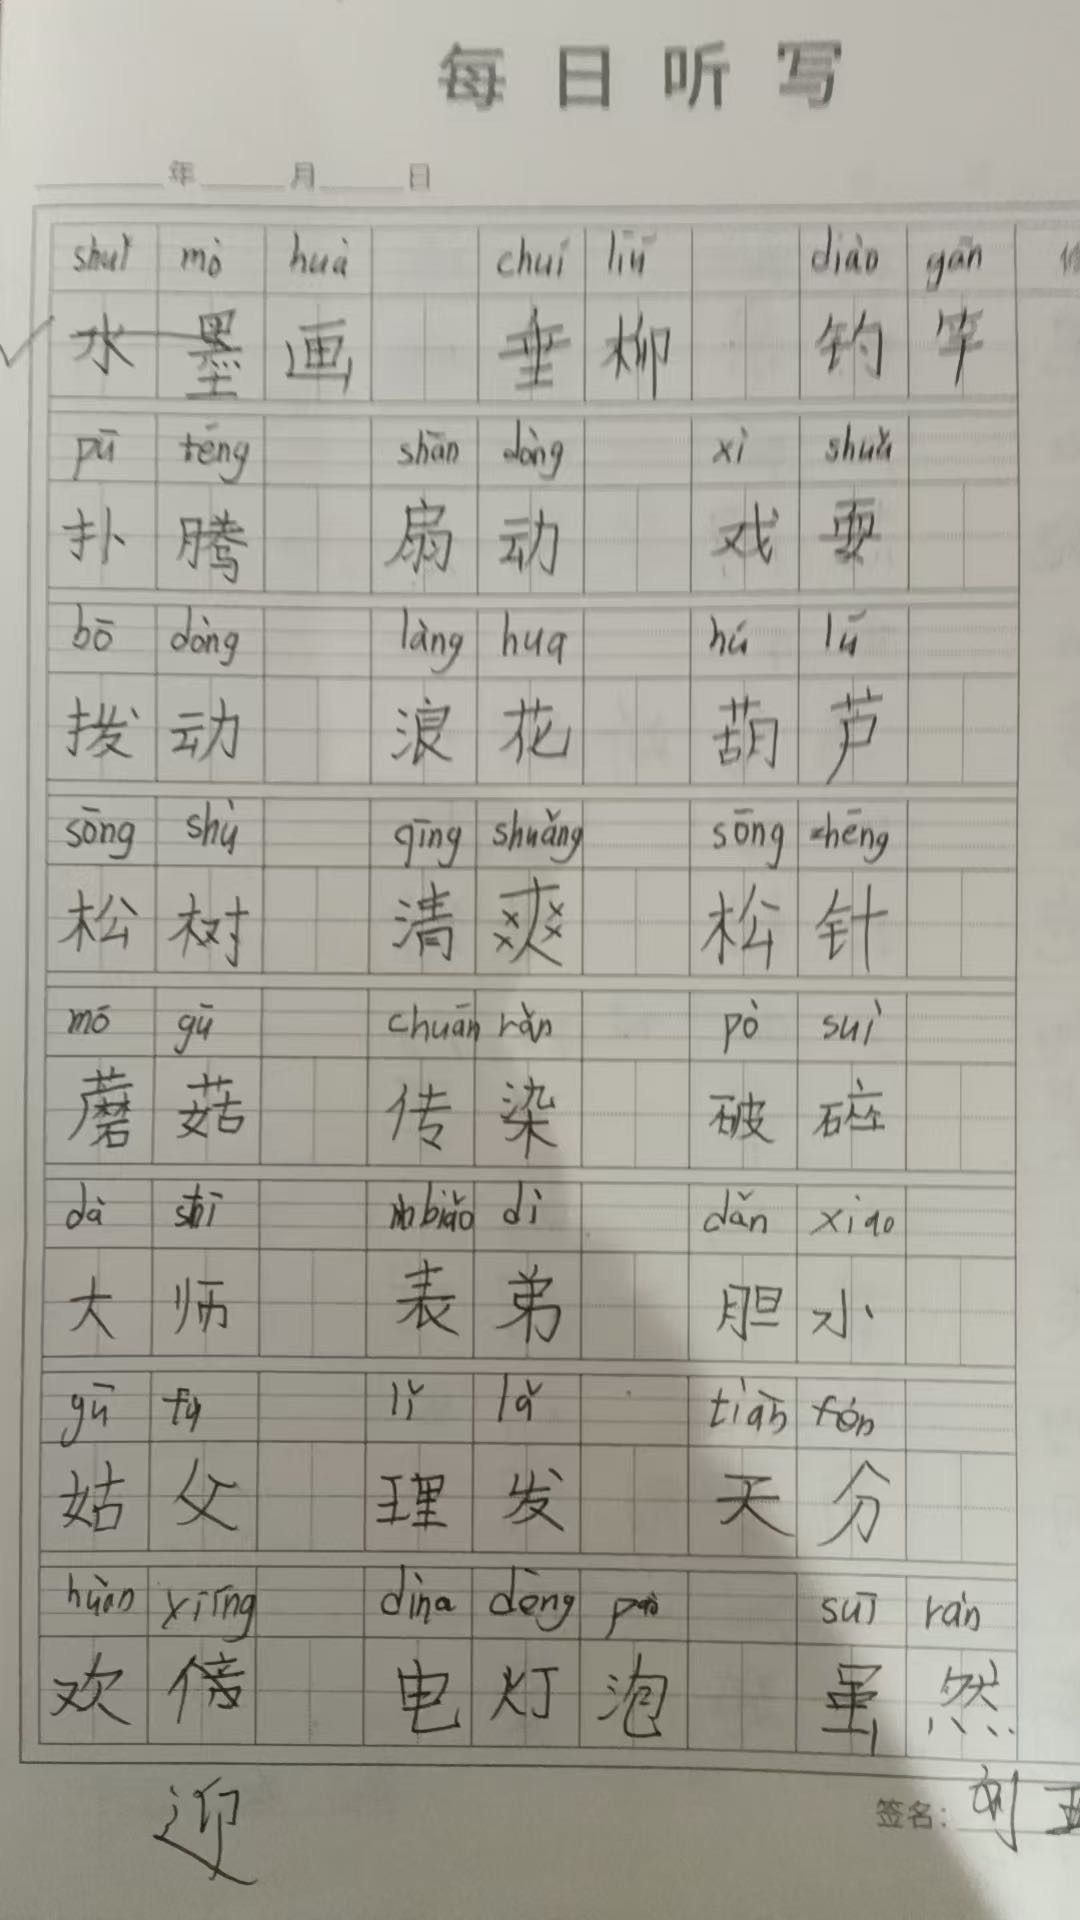 每日听写
年 月 日
shuǐ mò huà chuí liǔ diào gān
水墨画 垂柳 钓竿
pū téng shān dòng xì shuǎ
扑腾 扇动 戏耍
bō dòng làng hua hú lú
拨动 浪花 葫芦
sōng shù qīng shuǎng sōng zhēng
松树 清爽 松针
mó gū chuān rǎn pò suì
蘑菇 传染 破碎
dà shī biǎo dì dǎn xiao
大师 表弟 胆小
gū fu lǐ lǎ tiān fèn
姑父 理发 天分
huān xīng dina dēng pào suī rán
欢 电灯泡 虽然
迎
签名: 刘